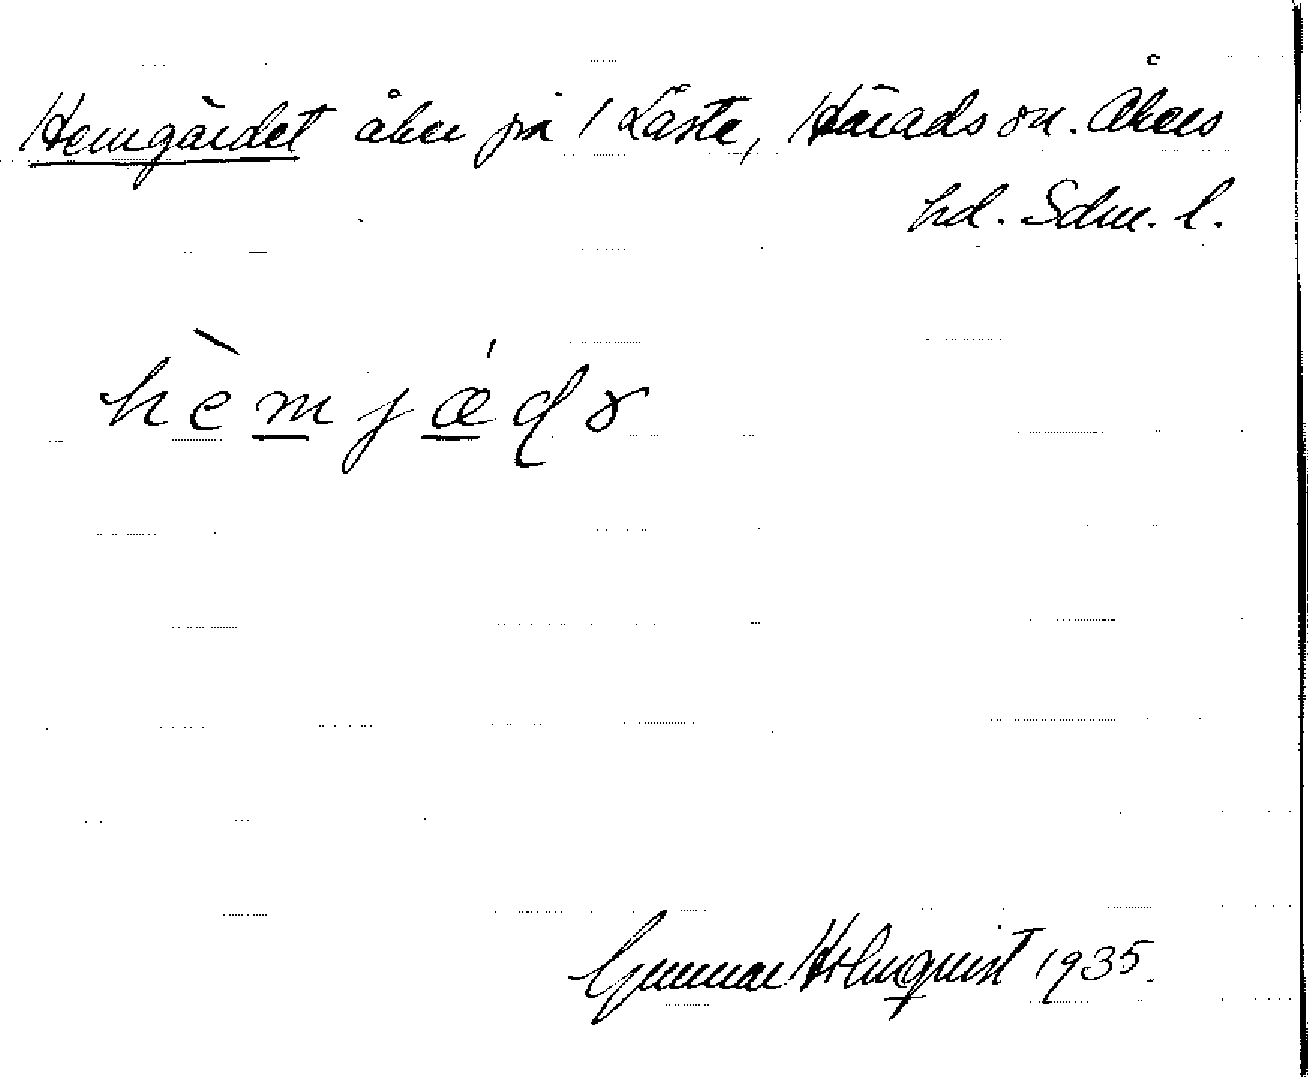 Hemgärdet åker på 1 Låsta, Härads sn. Åkers
hd. Sdm. l.
hèmjǽdɤ
Gunnar Holmquist 1935.